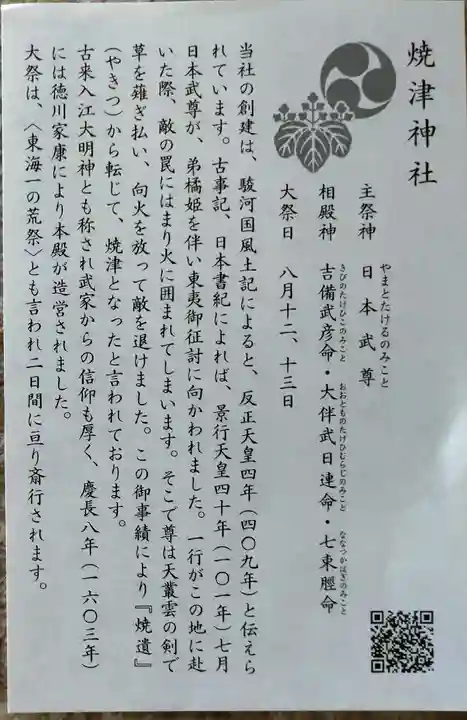 焼津神社
主祭神　日本武尊
やまとたけるのみこと
相殿神　吉備武彦命・大伴武日連命・七束脛命
きびのたけひこのみこと　おおとものたけひむらじのみこと　ななつかはぎのみこと
大祭日　八月十二、十三日
当社の創建は、駿河国風土記によると、反正天皇四年（四〇九年）と伝えら
れています。古事記、日本書紀によれば、景行天皇四十年（一〇一年）七月
日本武尊が、弟橘姫を伴い東夷御征討に向かわれました。一行がこの地に赴
いた際、敵の罠にはまり火に囲まれてしまいます。そこで尊は天叢雲の剣で
草を薙ぎ払い、向火を放って敵を退けました。この御事績により『焼遺』
（やきつ）から転じて、焼津となったと言われております。
古来入江大明神とも称され武家からの信仰も厚く、慶長八年（一六〇三年）
には徳川家康により本殿が造営されました。
大祭は、〈東海一の荒祭〉とも言われ二日間に亘り斎行されます。